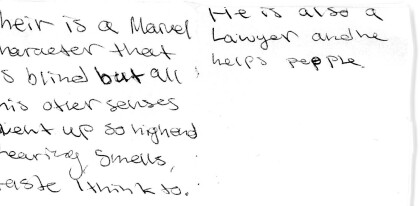 heir is a Marvel
haracter that
s blind but all
his other senses
went up so highend
hearing, smells,
aste I think to.
He is also a
Lawyer and he
helps people.